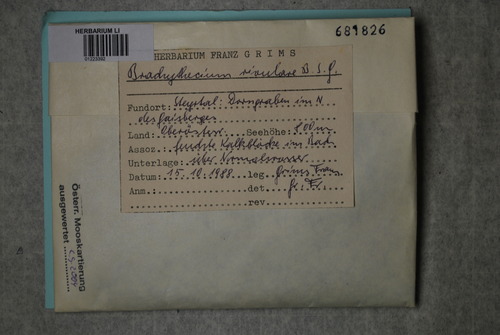 HERBARIUM LI
01223392
689826
HERBARIUM FRANZ GRIMS
Brachythecium rivulare B.S.G.
Fundort: Steyrtal: Dorngraben im N
des Gaisberges
Land: Oberösterr. Seehöhe: 500 m
Assoz. feuchte Kalkblöcke im Bach
Unterlage: über
Datum: 15.10.1988 leg. Grims Franz
Anm.: det. Gr. Fr.
rev.
Österr. Mooskartierung
ausgewertet